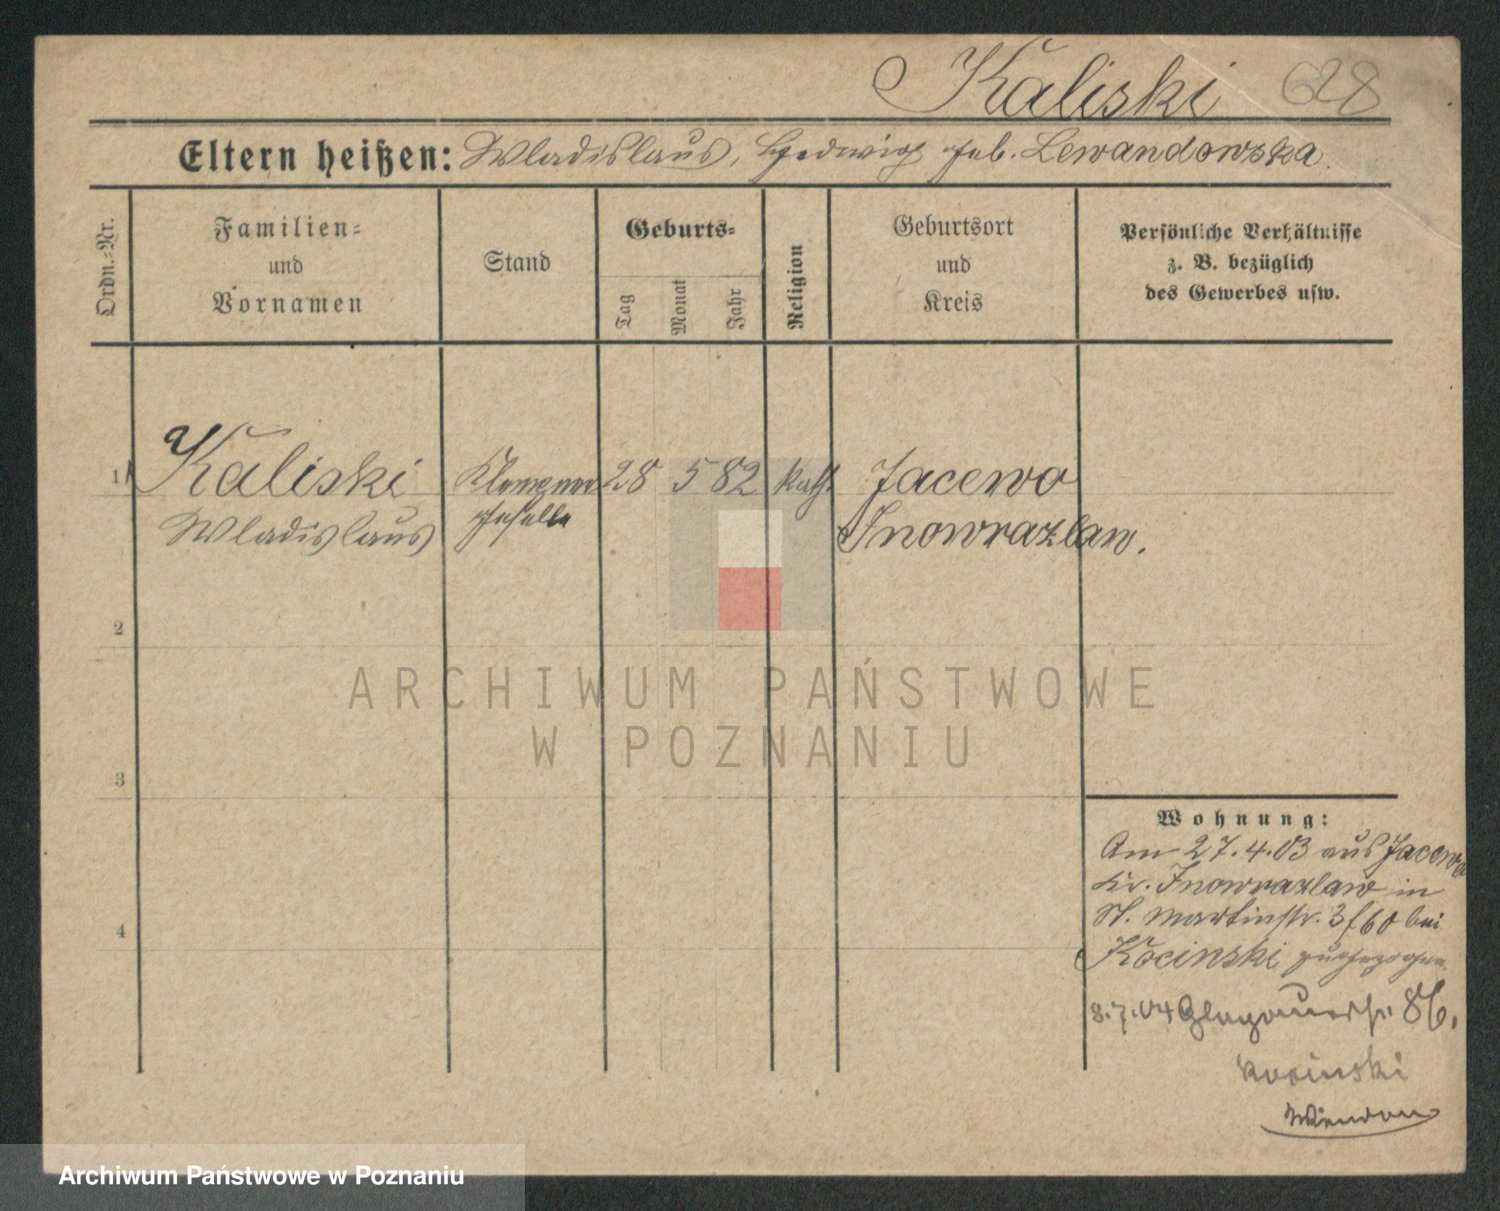 Kaliski 628
Eltern heißen: Wladislaus, Hedwig geb. Lewandowska.
Ordn.-Nr.
Familien-
und
Vornamen
Stand
Geburts-
Tag
Monat
Jahr
Religion
Geburtsort
und
Kreis
Persönliche Verhältnisse
z. B. bezüglich
des Gewerbes usw.
1 Kaliski Klempner 28 5 82 kath. Jacewo
Wladislaus geselle Inowrazlaw.
2
3
4
Wohnung:
Am 27.4.03 aus Jacewo
Kr. Inowrazlaw in
St. Martinstr. 3 f60 bei
Kocinski zugezogen.
8.7.04 Glogauerstr. 86.
Kocinski
ARCHIWUM PAŃSTWOWE
W POZNANIU
Archiwum Państwowe w Poznaniu